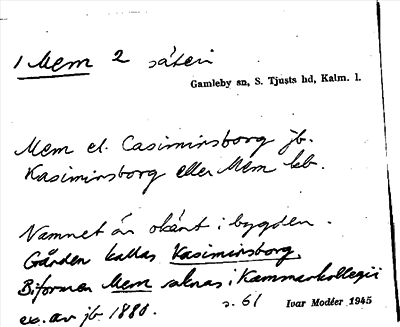 1 Mem 2 säteri
Gamleby sn, S. Tjusts hd, Kalm. l.
Mem el. Casimirsborg jb.
Kasimirsborg eller Mem kb.
Namnet är okänt i bygden.
Gården kallas Kasimirsborg.
Biformen Mem saknas i Kammarkollegii
ex. av jb. 1880.
s. 61 Ivar Modéer 1945